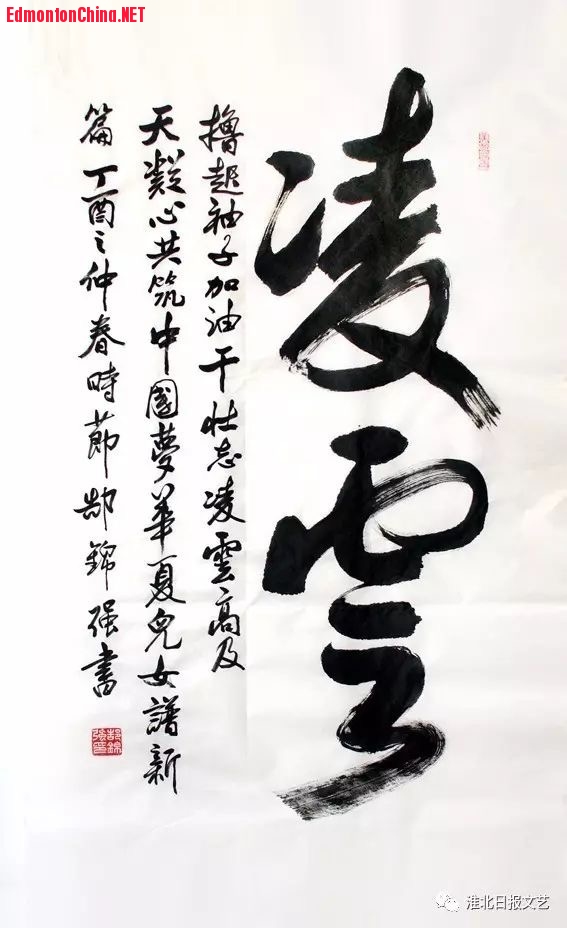 EdmontonChina.NET
凌雲
撸起袖子加油干壮志凌雲高及
天凝心共筑中國夢華夏兒女譜新
篇丁酉之仲春時節郜錦强書
郜錦
强印
淮北日报文艺